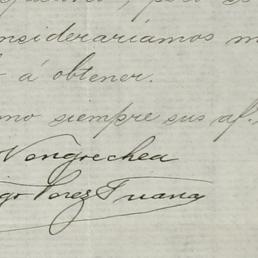 consideraríamos m
á obtener.
mo siempre sus af.
Vengoechea
Perez Triana